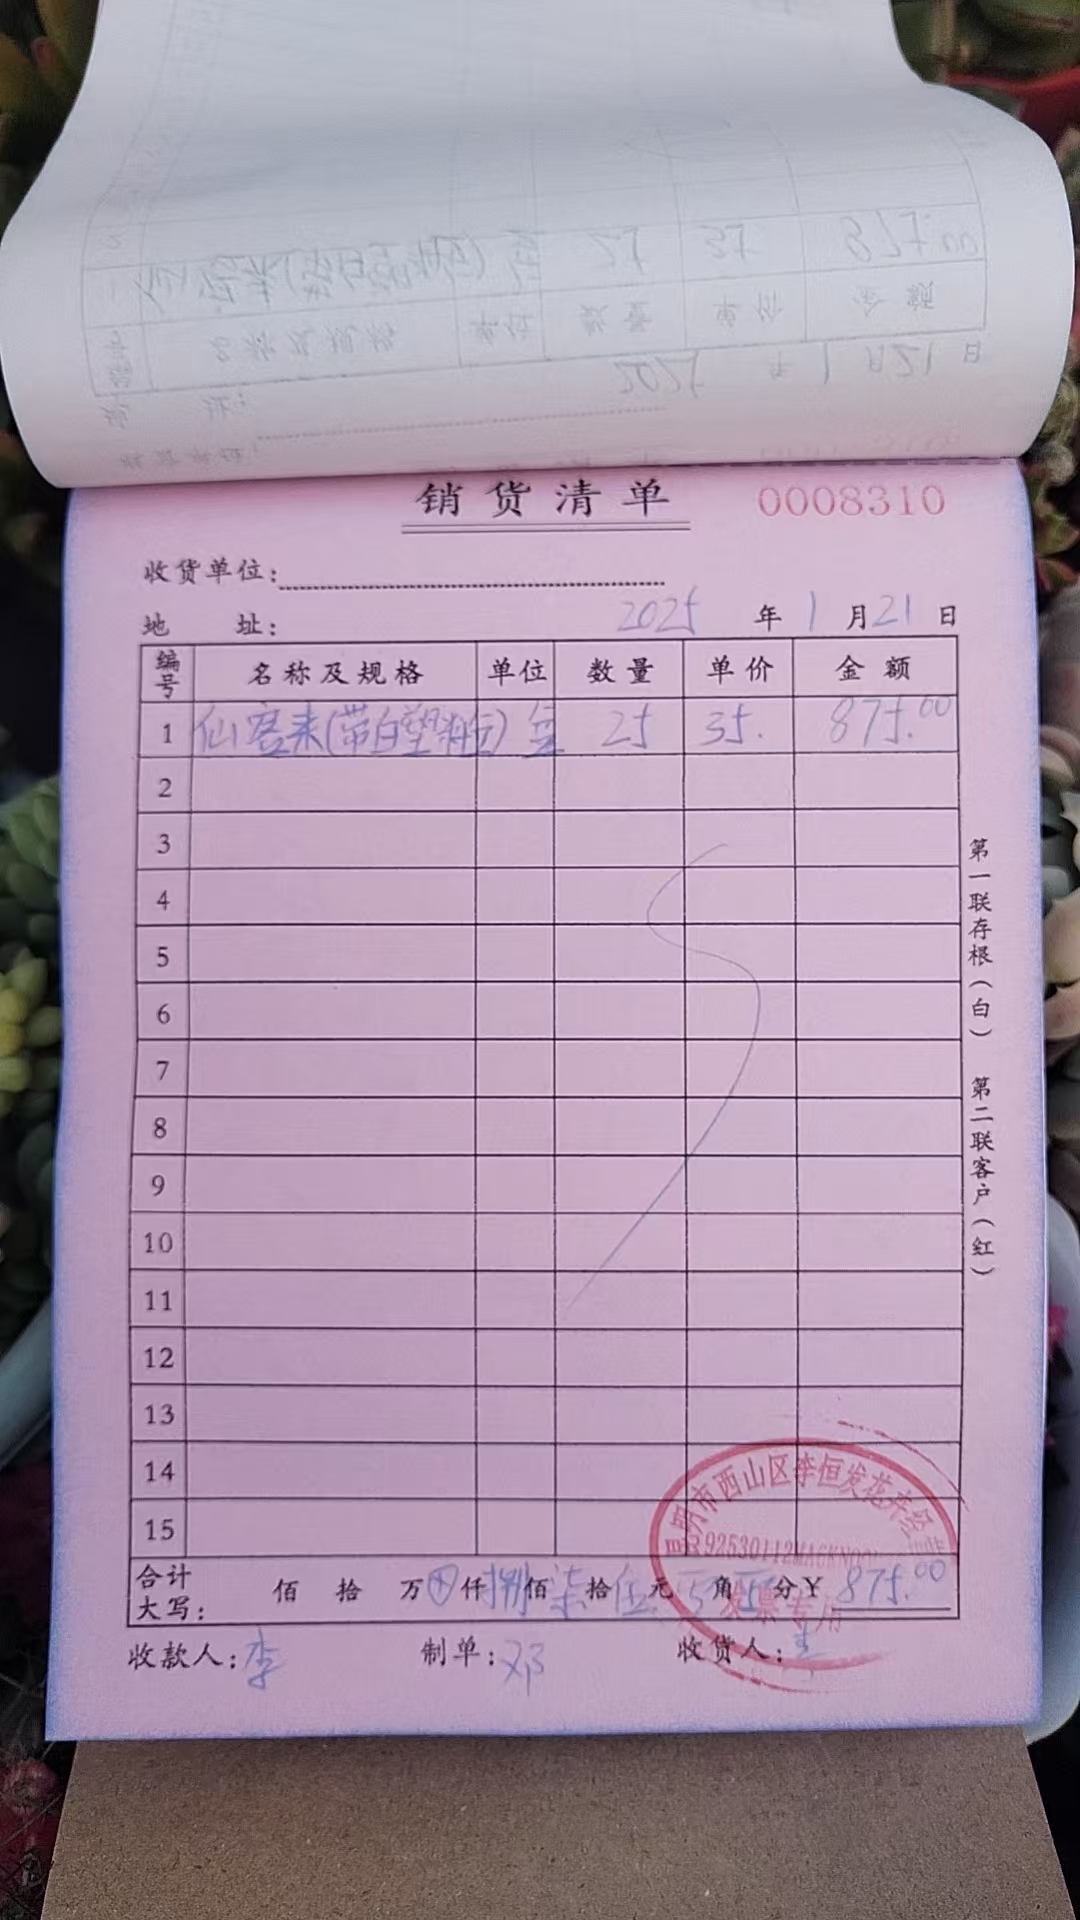 销货清单 0008310
收货单位:
地 址: 2025 年 1 月 21 日
编号 名称及规格 单位 数量 单价 金额
1 仙客来(带白塑料盆) 盆 25 35. 875.00
2
3
4
5
6
7
8
9
10
11
12
13
14
15
合计大写: 佰 拾 万 仟 捌 佰 柒 拾 伍 元 角 分 ¥ 875.00
收款人: 李 制单: 邓 收货人:
第一联存根(白) 第二联客户(红)
昆明市西山区李恒发花卉经营
发票专用